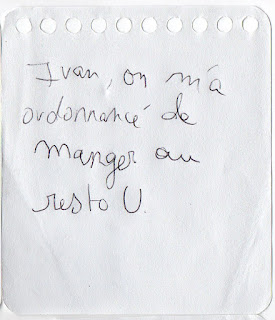 Ivan, on m'a
ordonnancé de
manger au
resto U.